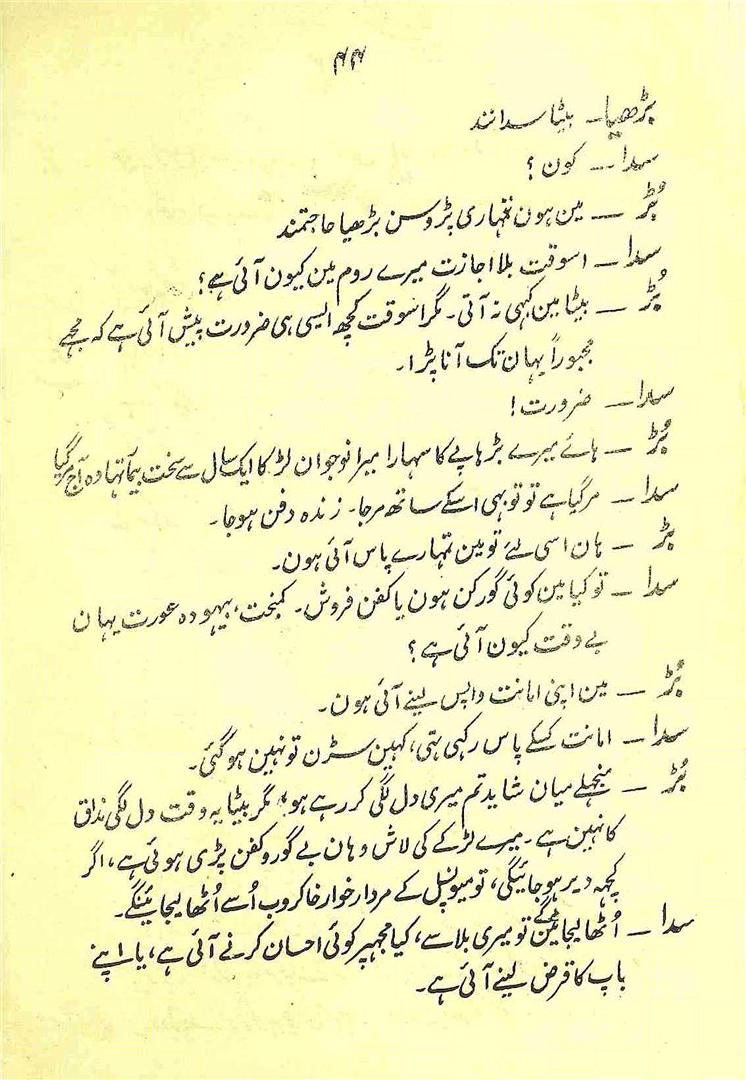 ۴۴
بڑھیا۔ بیٹا سدانند
سدا ــ کون؟
بُڑ ــ مین ہون تمہاری پڑوسن بڑھیا حاجتمند
سدا ــ اسوقت بلا اجازت میرے روم مین کیون آئی ہے؟
بُڑ ــ بیٹا مین کبھی نہ آتی۔ مگر اسوقت کچھ ایسی ہی ضرورت پیش آئی ہے کہ مجھے
مجبوراً یہان تک آنا پڑا۔
سدا ــ ضرورت!
بُڑ ــ ہائے میرے بڑہاپے کا سہارا میرا نوجوان لڑکا ایک سال سے سخت بیمار تہا وہ آج مر گیا
سدا ــ مر گیا ہے تو تو بہی اسکے ساتھ مر جا۔ زندہ دفن ہو جا۔
بڑ ــ ہان اسی لئے تو مین تمہارے پاس آئی ہون۔
سدا ــ تو کیا مین کوئی گورکن ہون یا کفن فروش۔ کمبخت، بیہودہ عورت یہان
بے وقت کیون آئی ہے؟
بُڑ ــ مین اپنی امانت واپس لینے آئی ہون۔
سدا ــ امانت کسکے پاس رکہی تہی، کہین سڑن تو نہین ہو گئی۔
بُڑ ــ منجہلے میان شاید تم میری دل لگی کر رہے ہو، مگر بیٹا یہ وقت دل لگی مذاق
کا نہین ہے۔ میرے لڑکے کی لاش وہان بے گور و کفن پڑی ہوئی ہے، اگر
کچہہ دیر ہو جائیگی، تو میونسپل کے مردار خوار خاکروب اُسے اُٹھا لیجائینگے۔
سدا ــ اُٹھا لیجائین گے تو میری بلا سے، کیا مجہپر کوئی احسان کرنے آئی ہے، یا اپنے
باپ کا قرض لینے آئی ہے۔